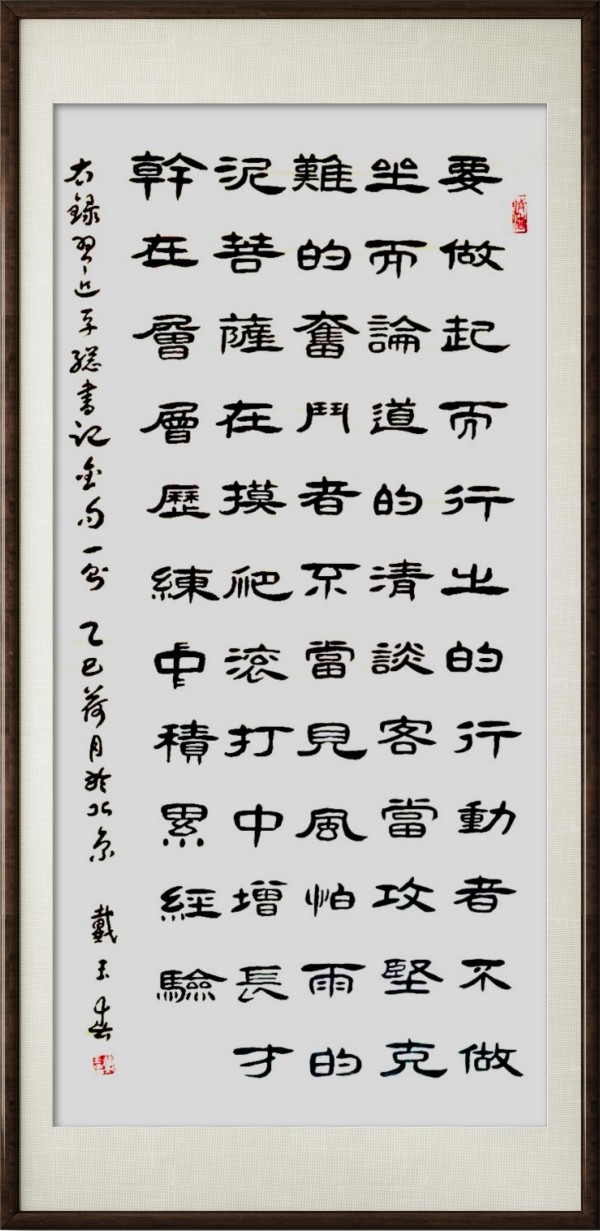 要做起而行之的行動者不做
坐而論道的清談客當攻堅克
難的奮鬥者不當見風怕雨的
泥菩薩在摸爬滚打中增長才
幹在層層歷練中積累經驗
右錄習近平總書記金句一則 乙巳荷月於北京 戴玉春